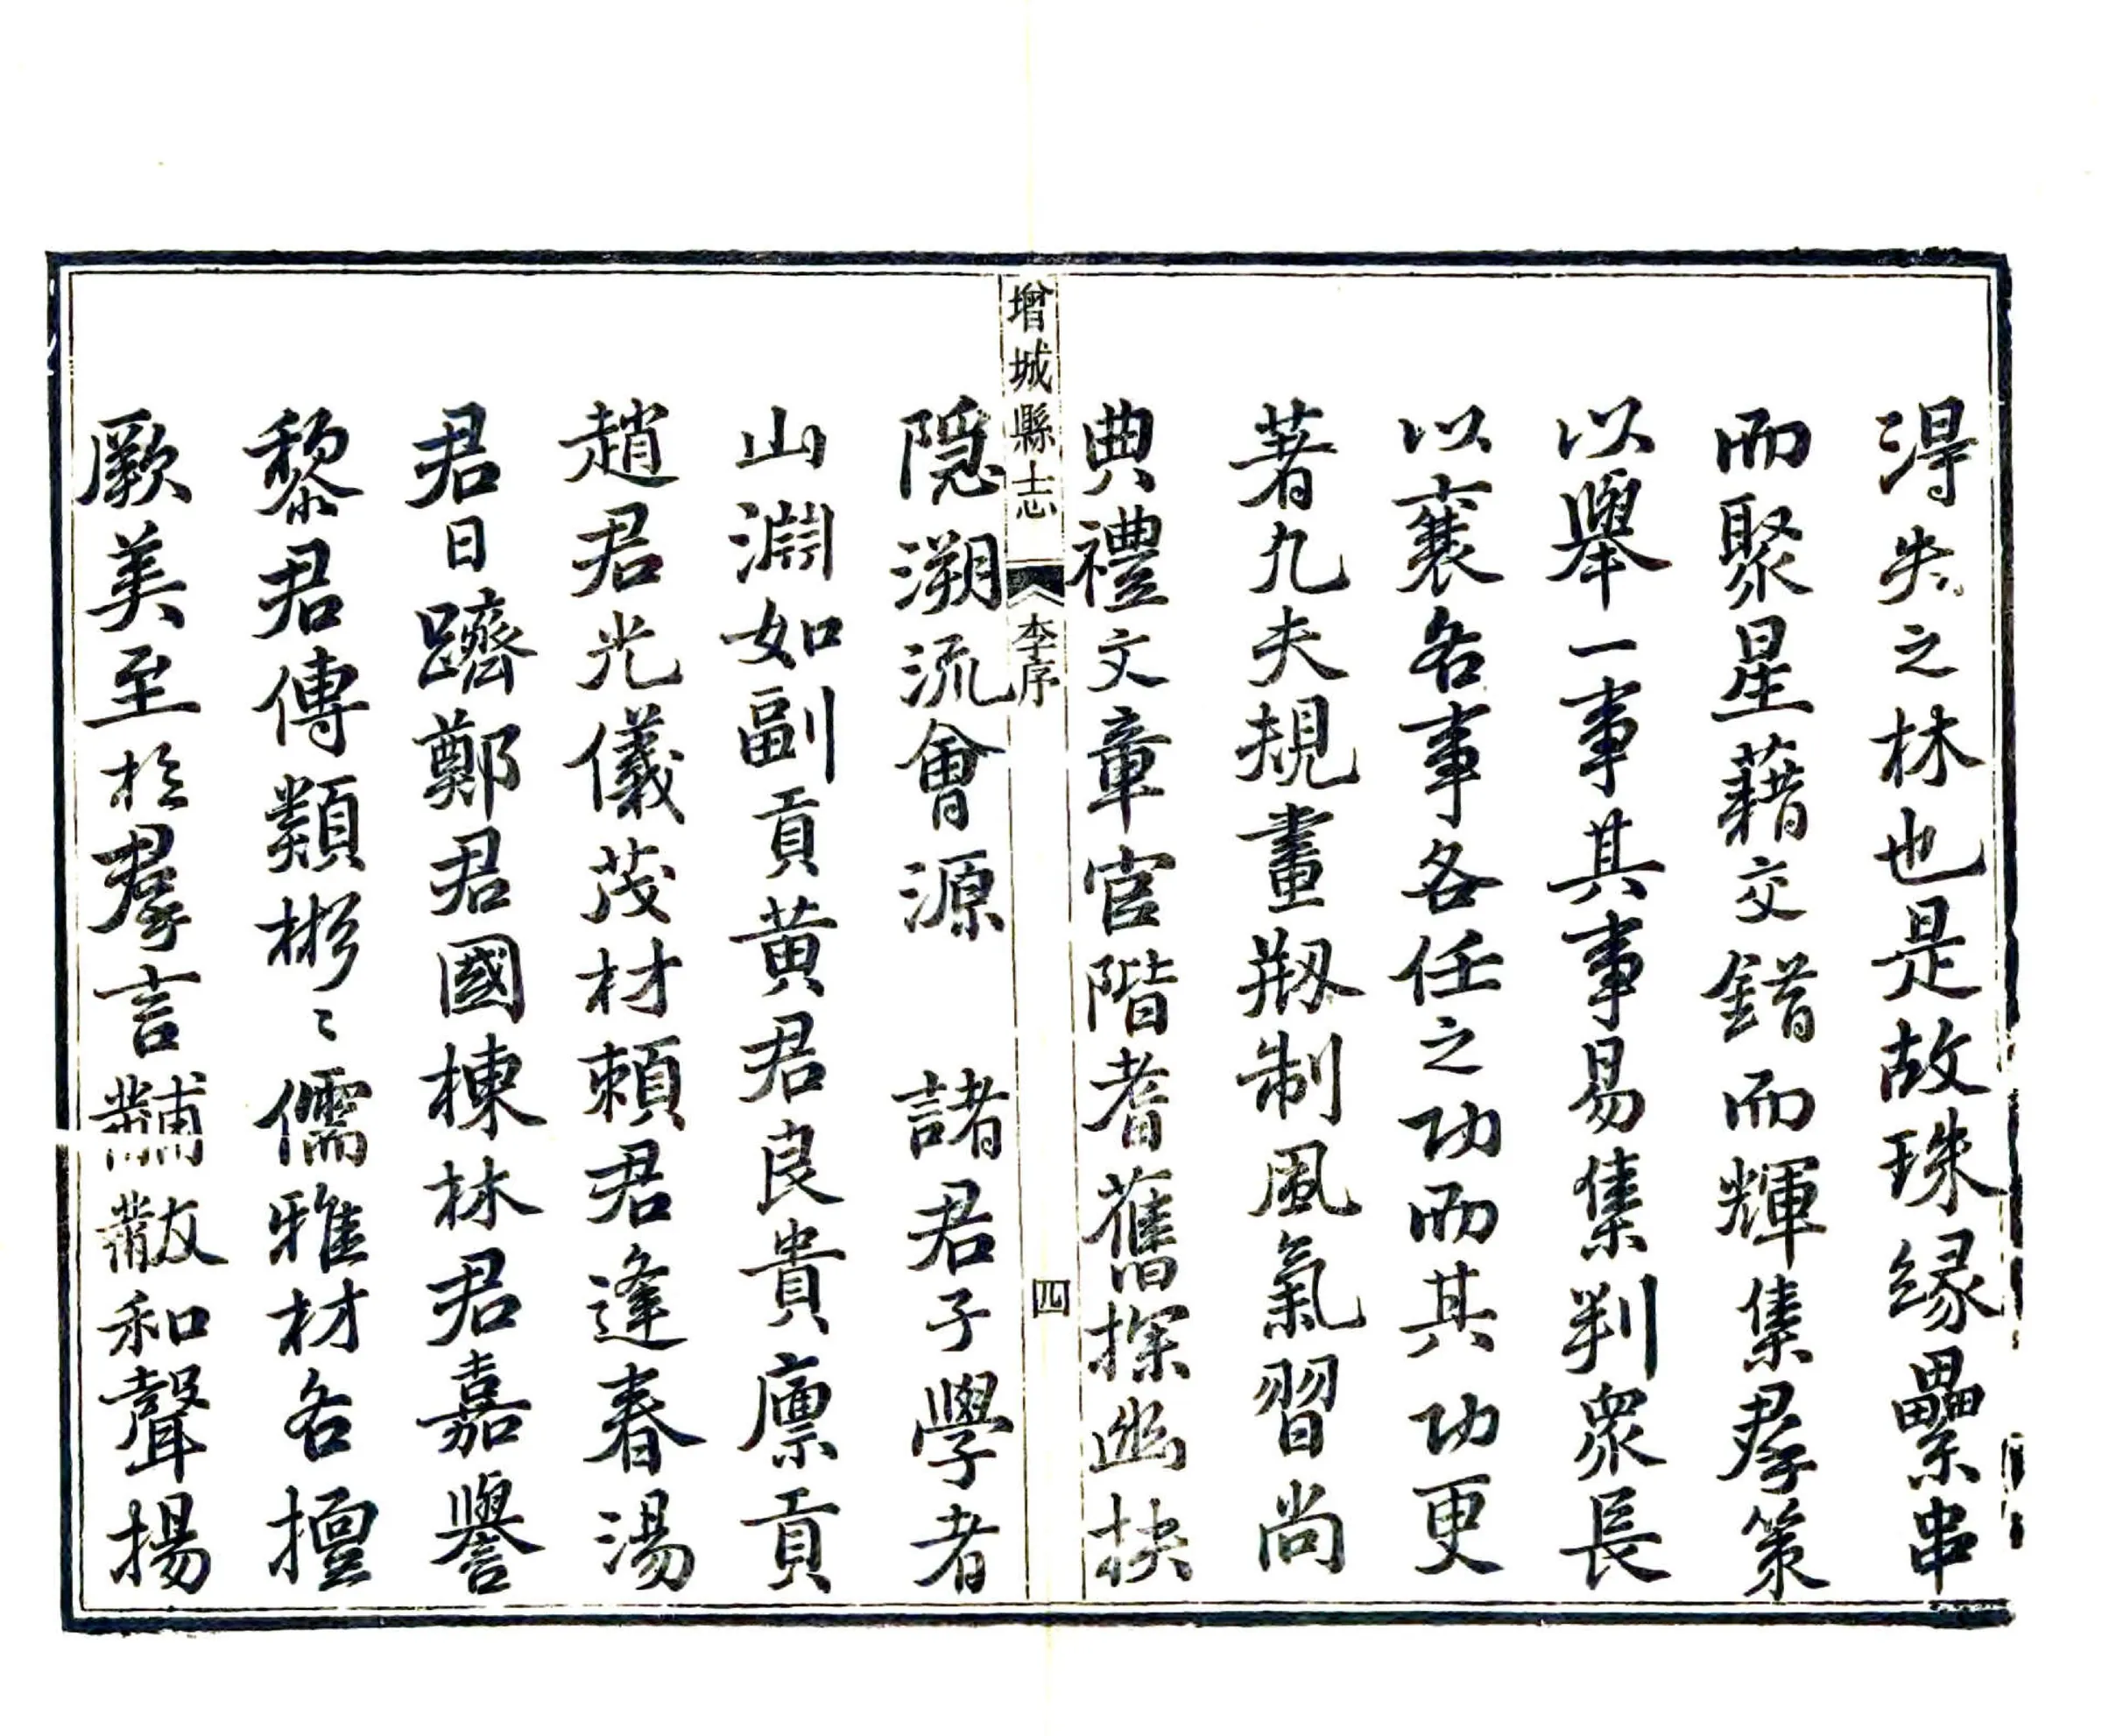 得失之林也是故珠縁纍串
而聚星藉交錯而輝集羣策
以舉一事其事易集判衆長
以襄各事各任之功而其功更
著凢夫規畫剏制風氣習尚
典禮文章官階耆舊探幽抉
增城縣志 李序 四
隠溯流會源 諸君子學者
山淵如副貢黄君良貴廪貢
趙君光儀茂材頼君逢春湯
君日躋鄭君國棟林君嘉譽
黎君傳類彬〻儒雅材各擅
厥美至於羣言黼黻和聲揚